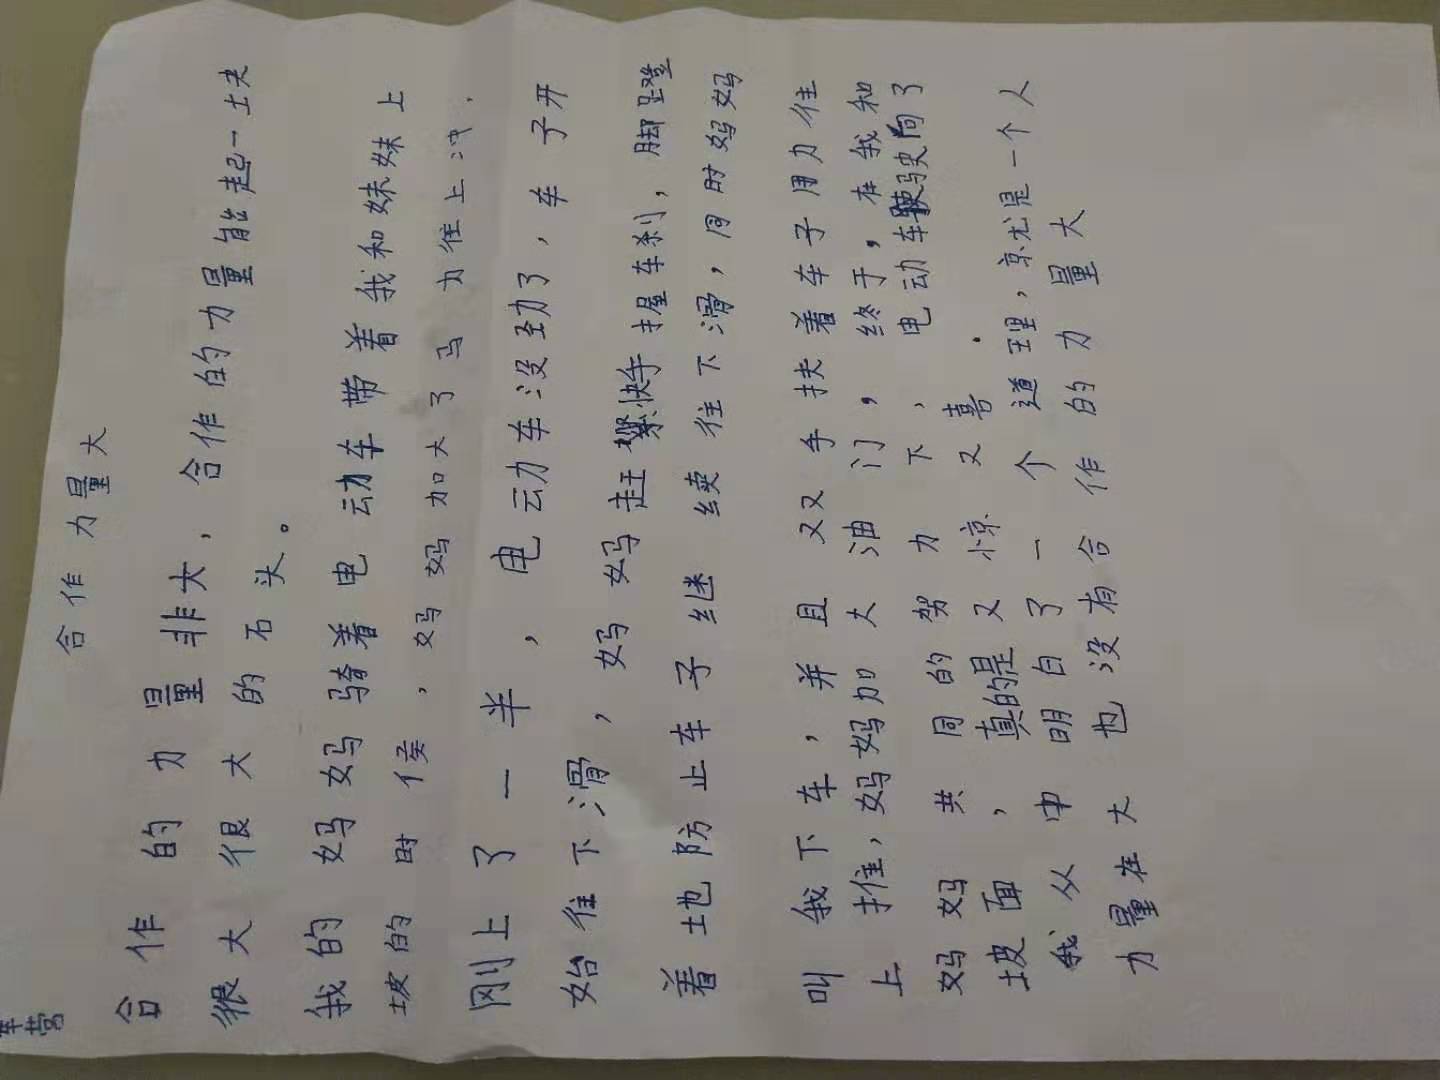 合作力量大
合作的力量非大，合作的力量能起一块
很大很大的石头。
我的妈妈骑着电动车带着我和妹妹上
坡的时候，妈妈加大了马力往上冲.
刚上了一半，电动车没劲了，车子开
始往下滑，妈妈赶快手握车刹，脚蹬
着地防止车子继续往下滑，同时妈妈
叫我下车，并且双手扶着车子用力往
上推，妈妈加大油门，终于，在我和
妈妈共同的努力下，电动车驶向了
坡面，真的是又惊又喜.
我从中明白了一个道理，就是一个人
力量在大也没有合作的力量大